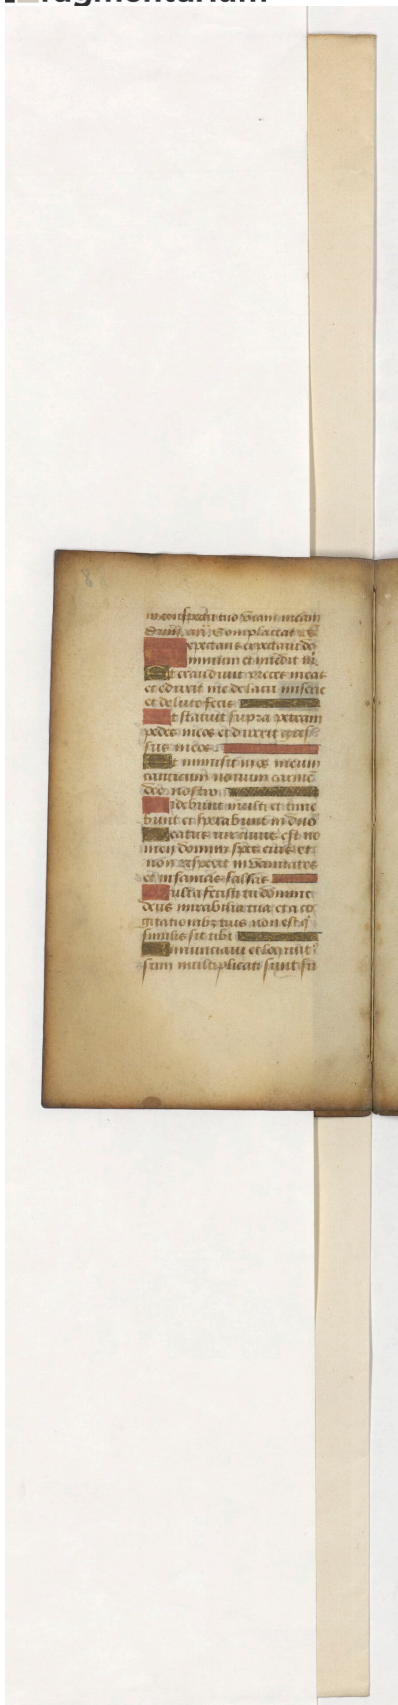 in conspectu tuo viam meam
Complaceat
expectans expectavi do
minum et intendit m
Et exaudivit preces meas
et eduxit me de lacu miserie
et de luto fecis
Et statuit supra petram
pedes meos et direxit gres
sus meos
Et immisit in os meum
canticum novum carme
deo nostro
Videbunt multi et time
bunt et sperabunt in dno
Beatus vir cuius est no
men domini spes eius et
non respexit in vanitates
et insanias falsas
Multa fecisti tu domine
deus mirabilia tua et co
gitationibz tuis non est q
similis sit tibi
Annunciavi et locutus
sum multiplicati sunt su